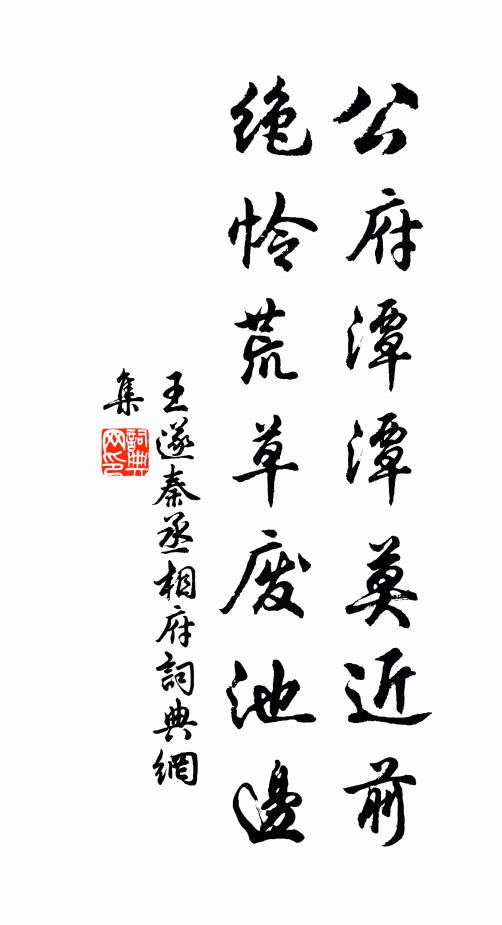 公府潭潭莫近前
绝怜荒草废池邊
王遂秦丞相府詞典網
集
詞典网印